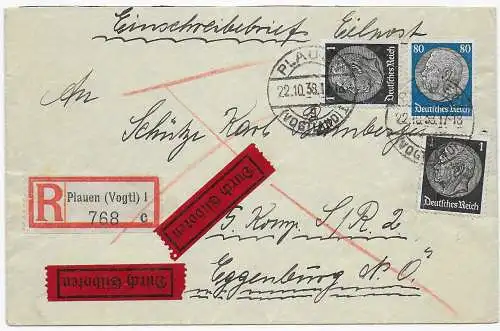 Einschreibebrief Eilpost
PLAUEN
22.10.38.17-18
(VOGTLAND) 1
1
Deutsches Reich
80 80
Deutsches Reich
22.10.38.17-18
1
Deutsches Reich
An
Schütze Karl
R Plauen (Vogtl) 1
768 c
Durch Eilboten
5. Komp. I/R. 2
Durch Eilboten
Eggenburg N. Ö.